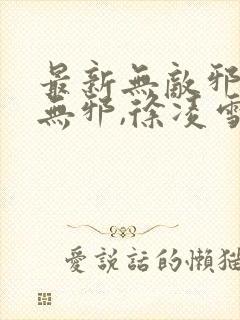 最新無敵邪
無邪,徐凌雪
愛說話的懶猫